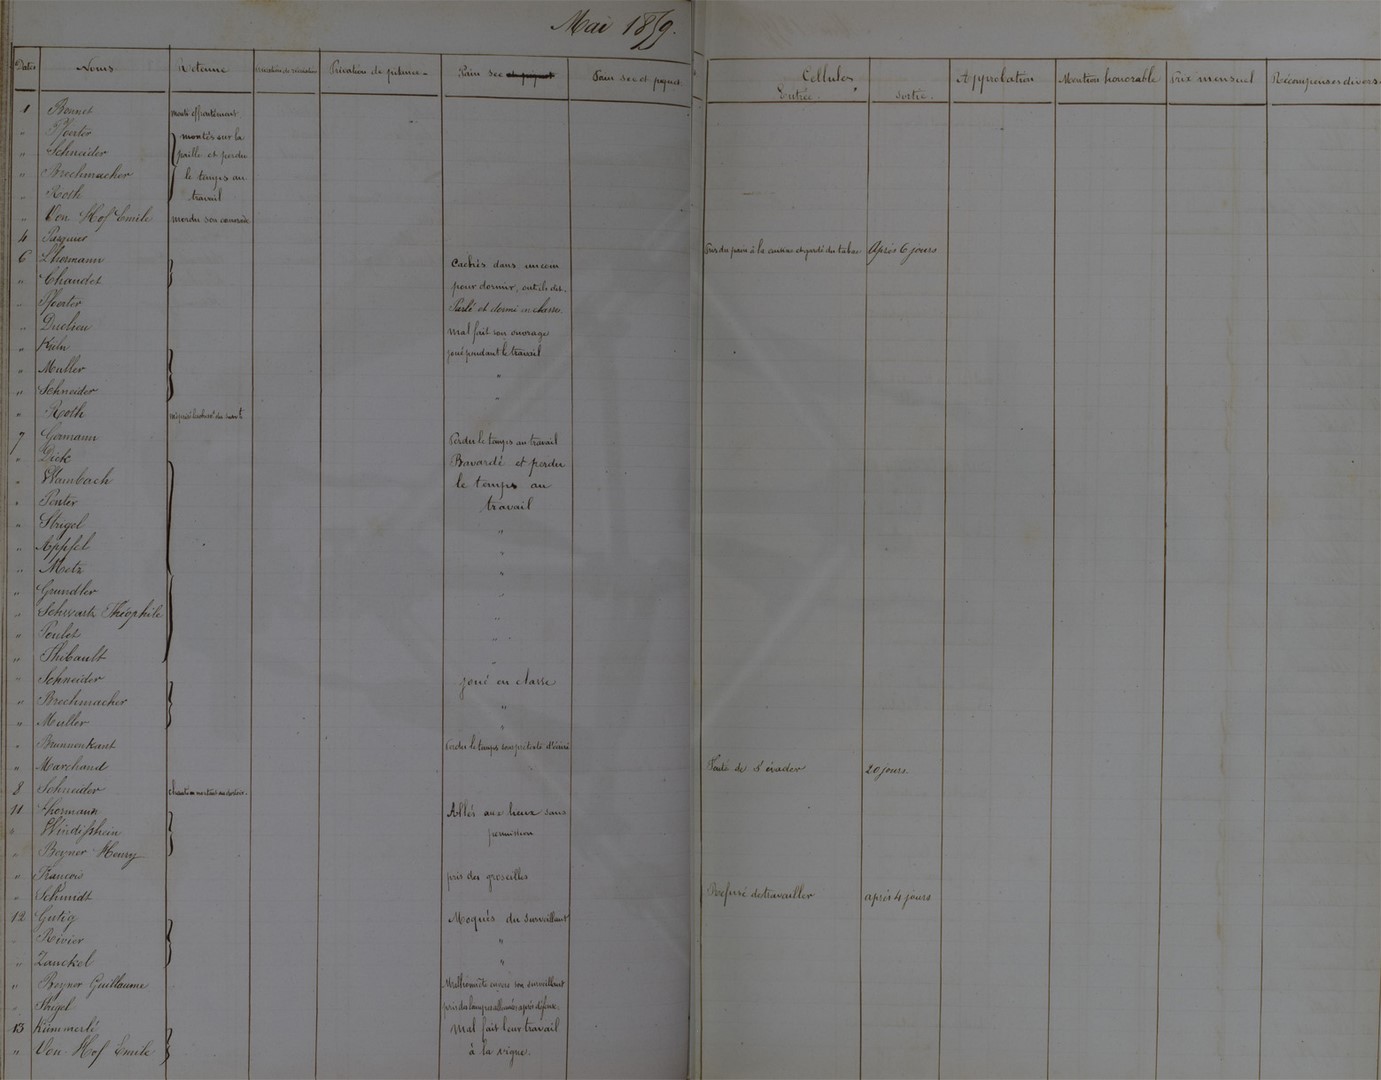 Mai 1859.
Dates Noms Retenue Privation de récréation Privation de pitance Pain sec et piquet Pain sec et piquet Cellules Approbation Mention honorable Prix mensuel Récompenses divers
Entrée sortie
1 Bonnet
" Pforter montés sur la
" Schneider paille et perdu
" Brechmacher le temps au
" Roth travail
" Von Hof Emile mordu son camarade
4 Pasquier Pris du pain à la cuisine et gardé du tabac Après 6 jours
6 Lhermann Cachés dans un coin
" Chaudet pour dormir,
" Pforter Parlé et dormi en classe
" Duchou mal fait son ouvrage
" Kuhn joué pendant le travail
" Muller "
" Schneider "
" Roth
7 Germann Perdu le temps au travail
" Dick Bavardé et perdu
" Wambach le temps au
" Penter travail
" Strigel "
" Appfel "
" Metz "
" Grundler "
" Schwartz Théophile "
" Poulet "
" Thibault "
" Schneider joué en classe
" Brechmacher "
" Muller "
" Brunnenkant Perdu le temps sous prétexte d'
" Marchand Tenté de s'évader 20 jours
8 Schneider
11 Lhermann Allés aux lieux sans
" Windisphein permission
" Beyner Henry
" Francois pris des groseilles
" Schmidt Refusé de travailler après 4 jours
12 Gutig Moqués du surveillant
" Rivier "
" Zanckel "
" Beyner Guillaume Malhonnête envers son surveillant
" Strigel
13 Kümmerlé Mal fait leur travail
" Von Hof Emile à la vigne.